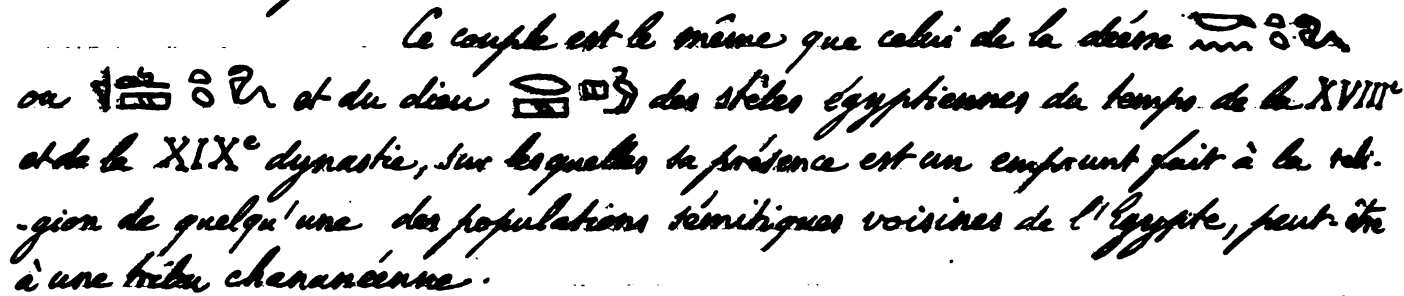 Ce couple est le même que celui de la déesse
ou et du dieu des stèles égyptiennes du temps de la XVIIIe
et de la XIXe dynastie, sur lesquelles sa présence est un emprunt fait à la reli-
-gion de quelqu'une des populations sémitiques voisines de l'Egypte, peut-être
à une tribu chananéenne.